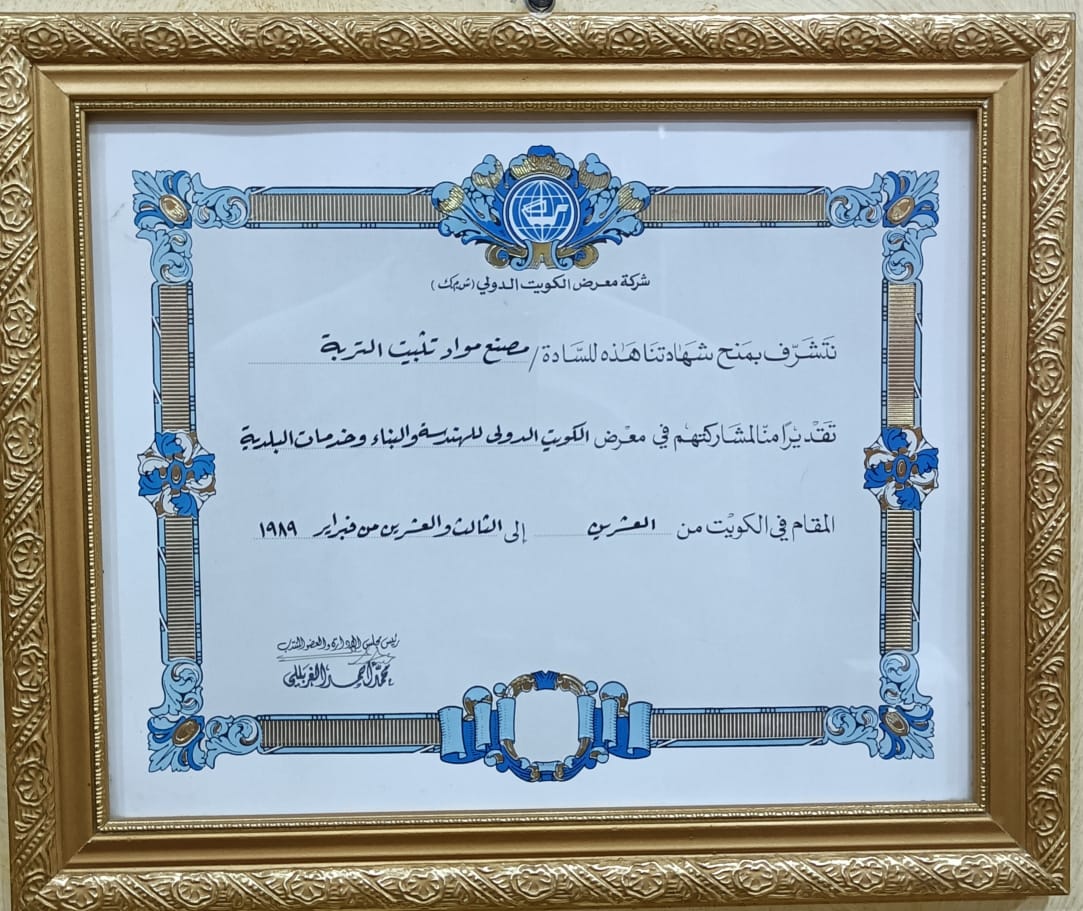 شركة معرض الكويت الدولي (ش.م.ك)
نتشرف بمنح شهادتنا هذه للسادة / مصنع مواد تثبيت التربة
تقديرا منا لمشاركتهم في معرض الكويت الدولى للهندسة والبناء وخدمات البلدية
المقام في الكويت من العشرين إلى الثالث والعشرين من فبراير ١٩٨٩
رئيس مجلس الإدارة والعضو المنتدب
محمد أحمد الغربللي